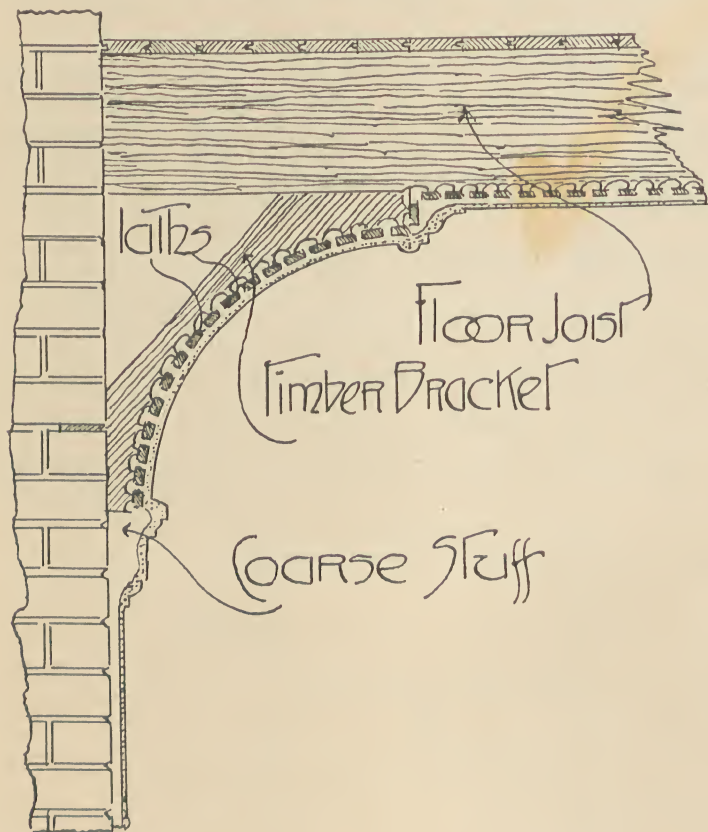 Laths
Floor Joist
Timber Bracket
Coarse Stuff